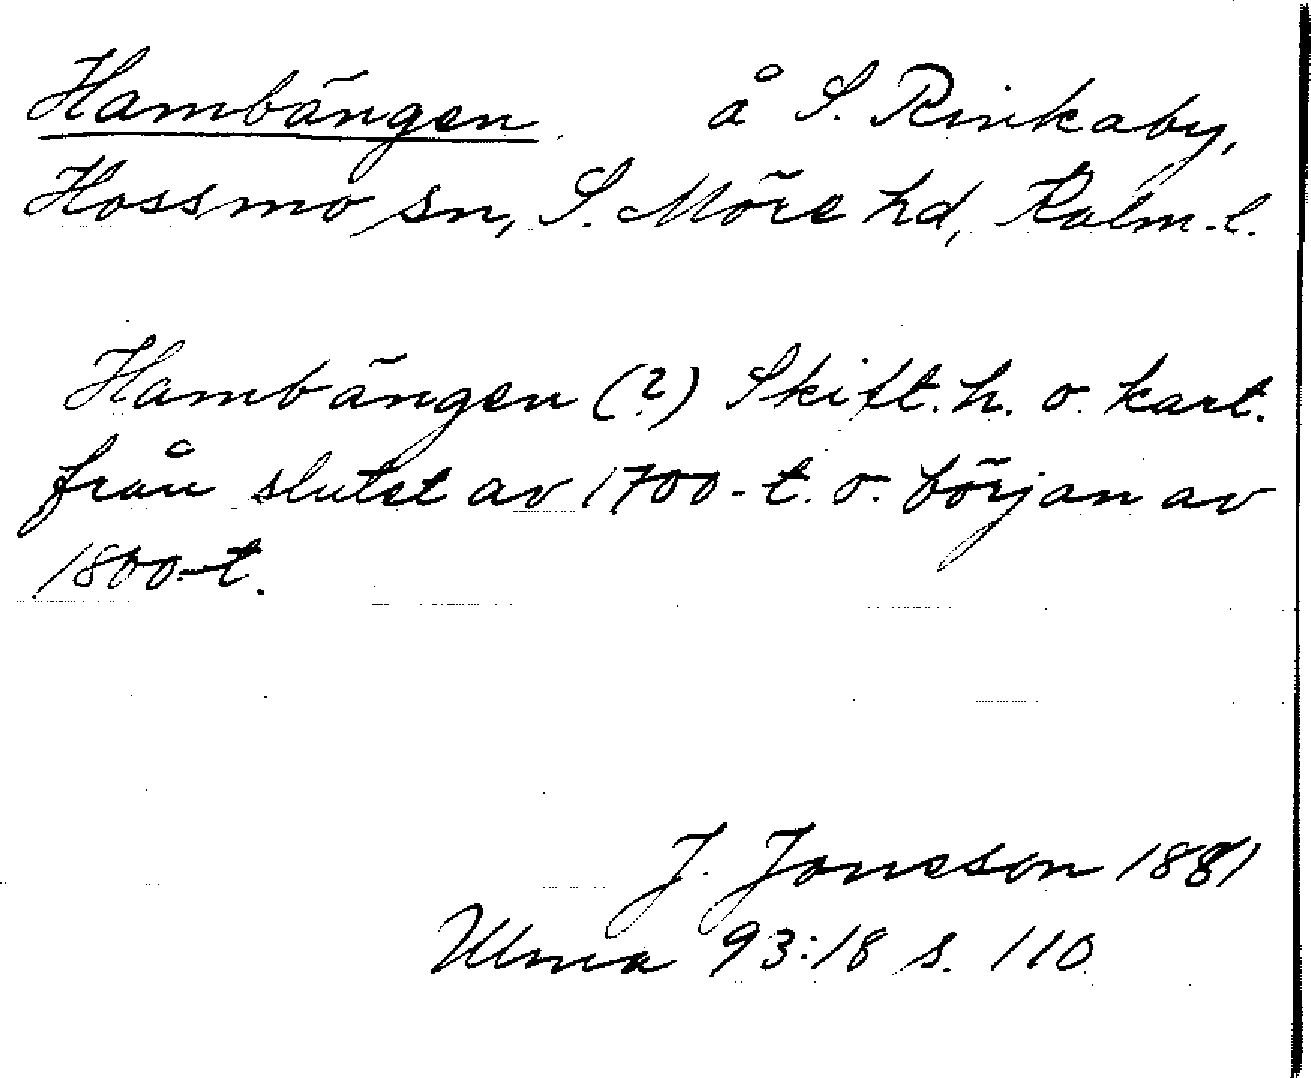 Hambängen. å S. Rinkaby,
Hossmo sn, S. Möre hd, Kalm. l.
Hambängen (?) Skift. h. o. kart.
från slutet av 1700-t. o. början av
1800-t.
J. Jonsson 1881
Ulma 93:18 s. 110